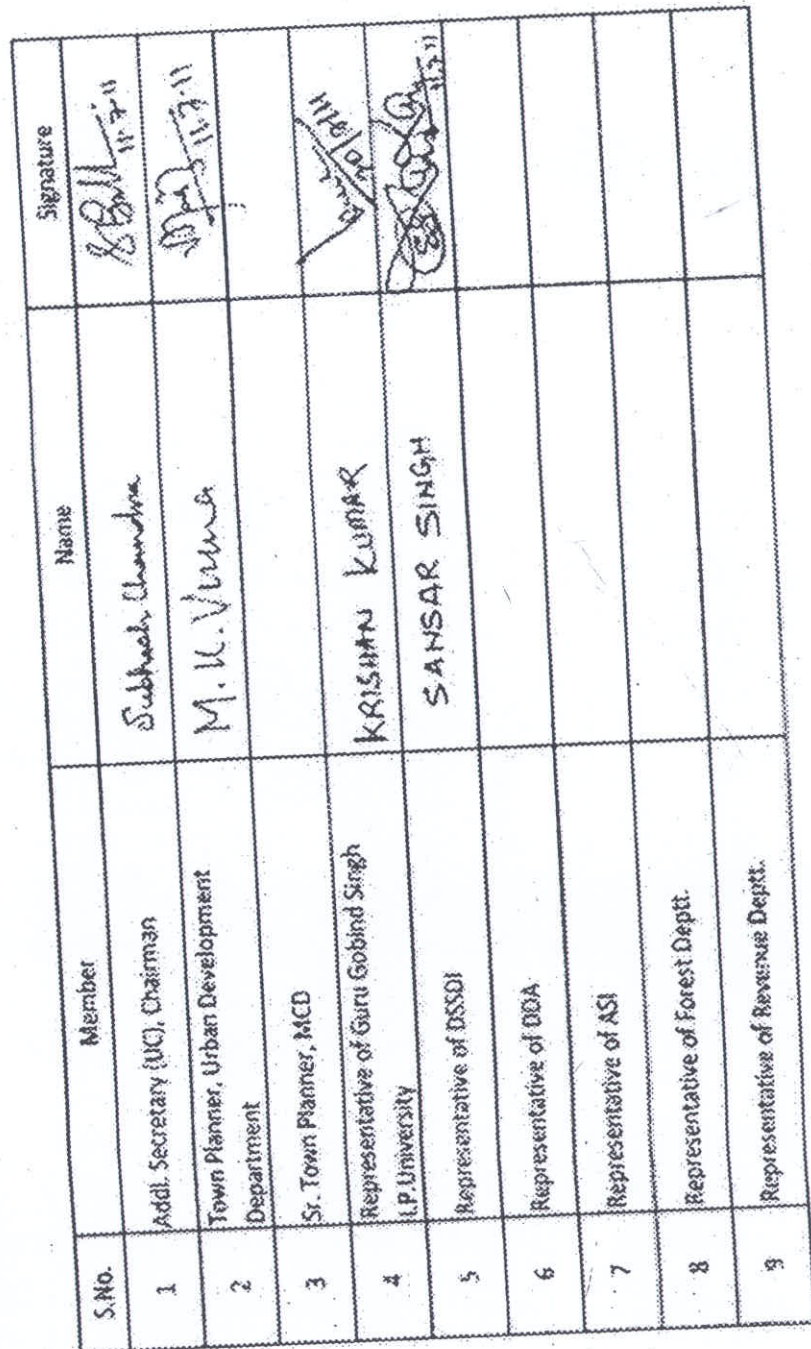 S.No. Member Name Signature
1 Addl. Secretary (UC), Chairman Subhash Chandra 11-7-11
2 Town Planner, Urban Development M. K. Verma 11.7.11
Department
3 Sr. Town Planner, MCD
4 Representative of Guru Gobind Singh KRISHAN KUMAR
I.P.University
5 Representative of DSSDI SANSAR SINGH
6 Representative of DDA
7 Representative of ASI
8 Representative of Forest Deptt.
9 Representative of Revenue Deptt.